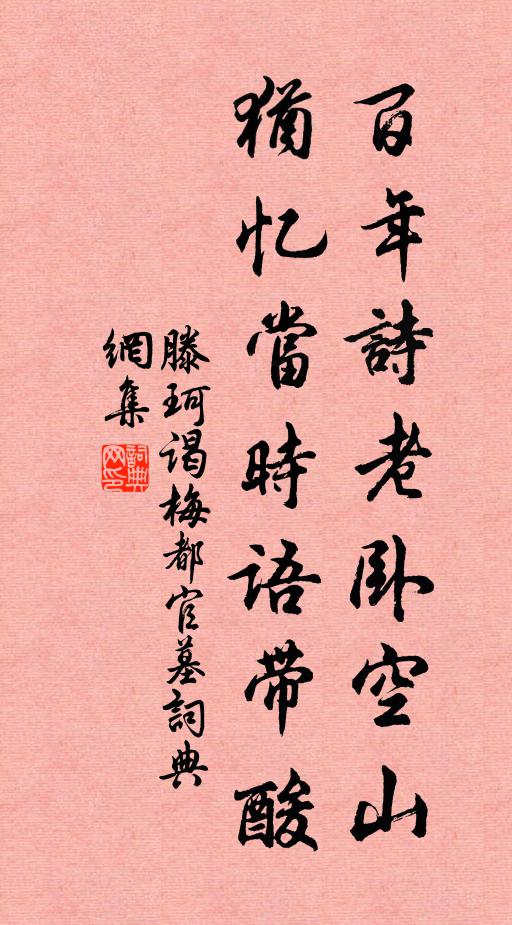 百年詩老卧空山
猶忆當時语带酸
滕珂谒梅都官墓詞典
網集
詞典
网印